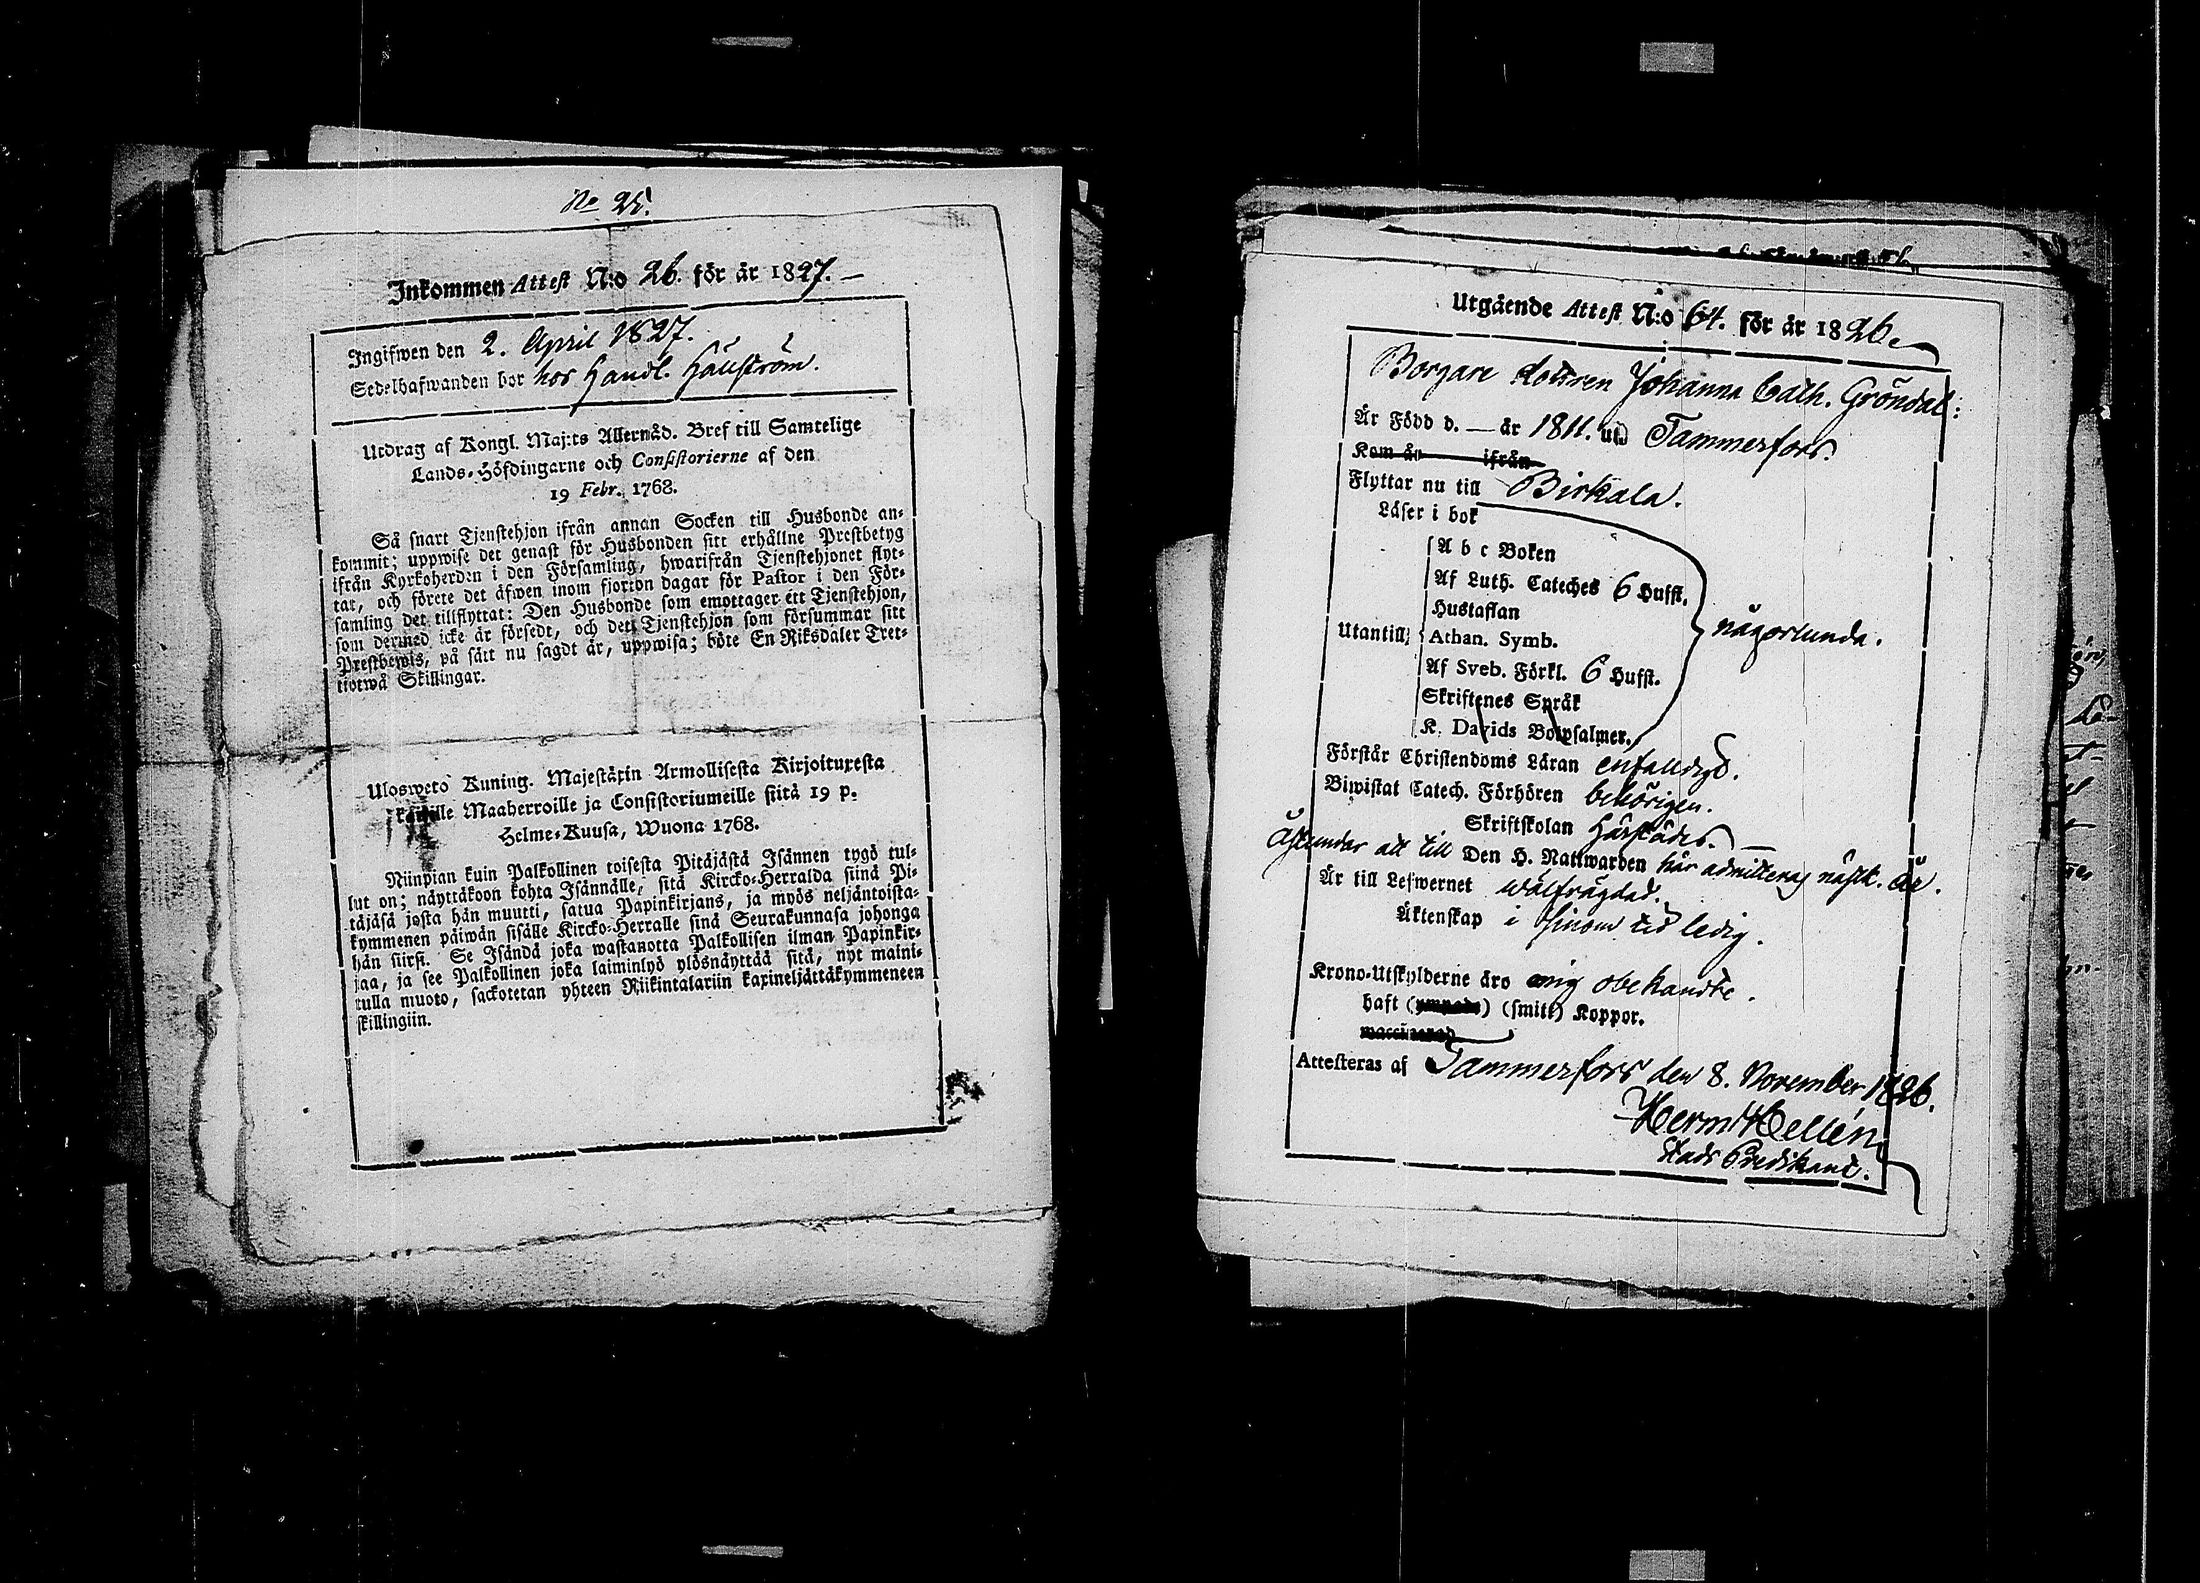 No 25.
Inkommen Attest N:o 26. för år 1827. —
Ingifwen den 2. April 1827.
Sedelhafwanden bor hos Handl. Hällström.
Utdrag af Kongl. Maj:ts Allernåd. Bref till Samtelige
Lands-Höfdingarne och Consistorierne af den
19 Febr. 1768.
Så snart Tjenstehjon ifrån annan Socken till Husbonde an-
kommit; uppwise det genast för Husbonden sitt erhållne Prestbetyg
ifrån Kyrkoherden i den Församling, hwarifrån Tjenstehjonet flyt-
tat, och förete det äfwen inom fjorton dagar för Pastor i den För-
samling det tillflyttat: Den Husbonde som emottager ett Tjenstehjon,
som dermed icke är försedt, och det Tjenstehjon som försummar sitt
Prestbewis, på sätt nu sagdt är, uppwisa; böte En Riksdaler Tret-
tiotwå Skillingar.
Ulosweto Kuning. Majestätin Armollisesta Kirjoituxesta
kaikille Maaherroille ja Consistoriumeille siitä 19 p.
Helme-Kuusa, Wuona 1768.
Niinpian kuin Palkollinen toisesta Pitäjästä Isännen tygö tul-
lut on; näyttäkoon kohta Isännälle, sitä Kircko-Herralda siinä Pi-
täjäsä josta hän muutti, saatua Papinkirjans, ja myös neljäntoista-
kymmenen päiwän sisälle Kircko-Herralle sinä Seurakunnasa johonga
hän siirsi. Se Isändä joka wastanotta Palkollisen ilman Papinkir-
jaa, ja see Palkollinen joka laiminlyö ylösnäyttää sitä, nyt maini-
tulla muoto, sackotetan yhteen Riikintalariin kaxineljättäkymmeneen
skillingiin.
Utgående Attest N:o 64. för år 1826.
Borgare dottren Johanna Cath. Gröndal:
Är Född d. — år 1811. uti Tammerfors.
Kom år ifrån
Flyttar nu till Birkala.
Läser i bok
A b c Boken
Af Luth. Cateches 6 Hufst.
Hustaflan
Utantill; Athan. Symb. någorlunda.
Af Sveb. Förkl. 6 Hufst.
Skriftenes Språk
K. Davids Botpsalmer.
Förstår Christendoms Läran enfaldigt.
Biwistat Catech. Förhören behörigen.
Skriftskolan härstädes. —
Åstundar att till Den H. Nattwarden här admitteras nästk. år.
Är till Lefwernet wälfrägdad.
Äktenskap i sinom tid ledig.
Krono-Utskylderne äro mig obekandte.
haft (ympade) (smitt) Koppor.
vaccinerad
Attesteras af Tammerfors den 8. November 1826.
Herm Hellén
Stads Predikant.